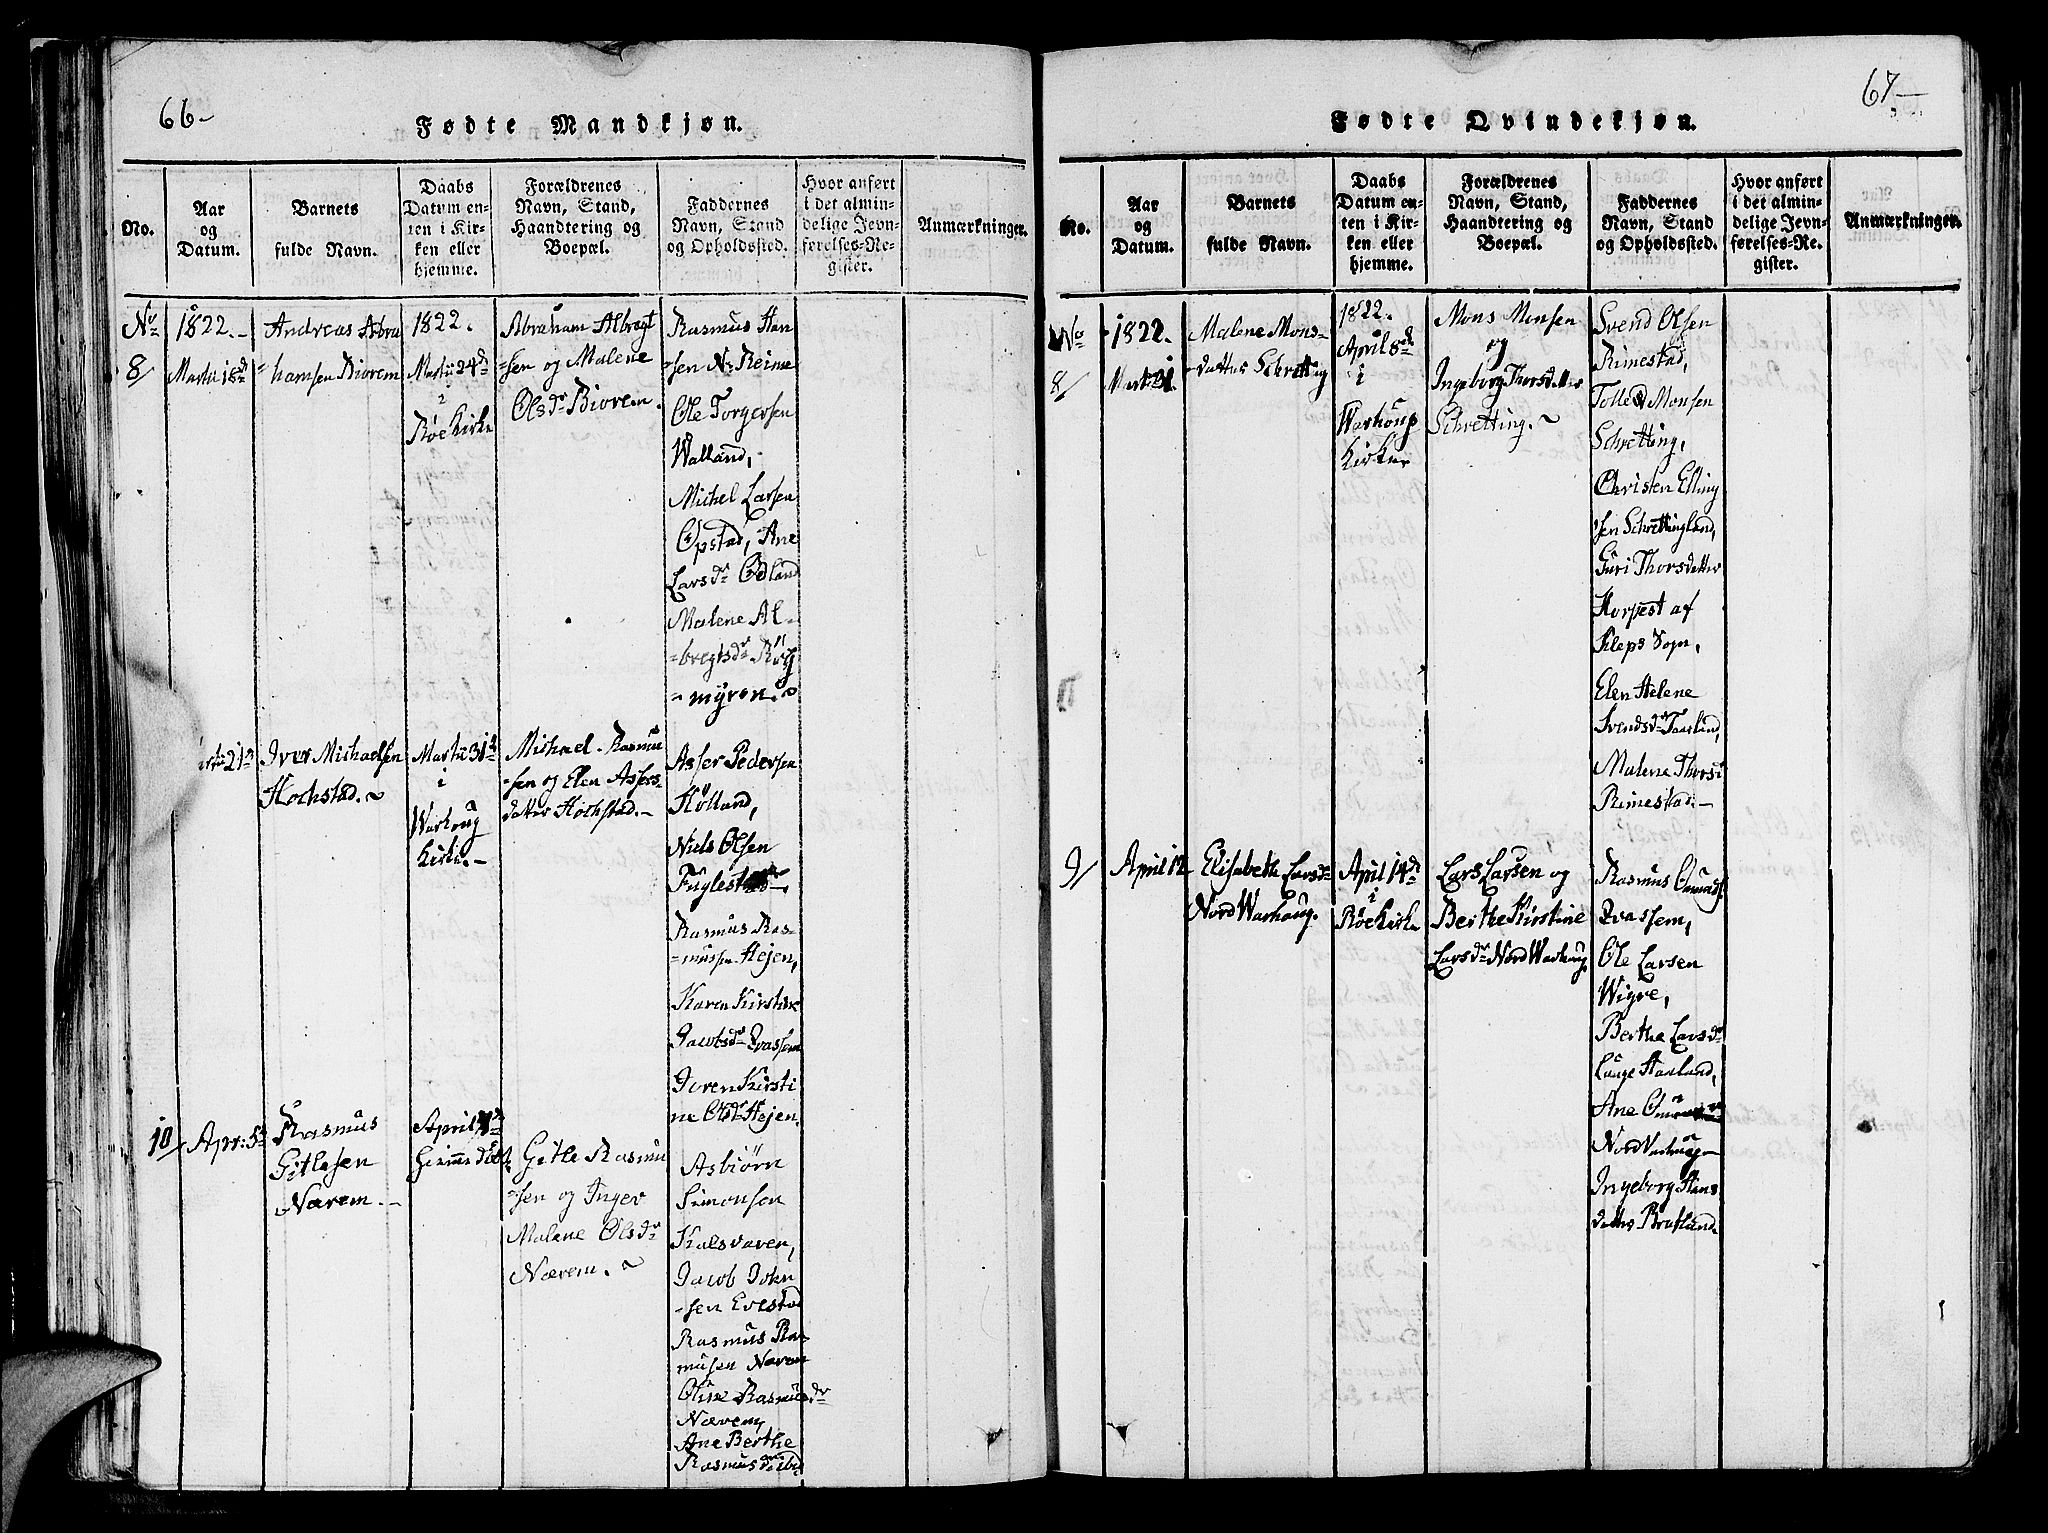 66-
Fødte Mandkjøn.
No.
Aar
og
Datum.
Barnets
fulde Navn.
Daabs
Datum en-
ten i Kir-
ken eller
hjemme.
Forældrenes
Navn, Stand,
Haandtering og
Boepæl.
Faddernes
Navn, Stand
og Opholdssted.
Hvor anført
i det almin-
delige Jevn-
førelses-Re-
gister.
Anmærkninger.
No
8/
1822.-
Martii 18d
Andreas Abra
=hamsen Biorem
1822.
Martii 24d
i
Røe Kirke
Abraham Albregt
=sen og Malene
Olsdr Biorem.
Rasmus Han
=sen Nr Reime
Ole Torgersen
Walland,
Michel Larsen
Opstad, Ane
Larsdr Ødland
Malene Al=
=bregtsdr Røg
=myren.~
21n
Iver Michaelsen
Hochstad.~
Martii 31te
i
Warhoug
Kirke.-
Michael Rasmu
=sen og Elen Assers-
datter Hochstad.-
Asser Pedersen
Hølland,
Niels Olsen
Fuglestad-
Rasmus Ras=
=mussen Hejen,
Karen Kirstine
Jacobsdr Qvassem
Joren Kirsti
ne Olsdr Hejen.
10/
Apr: 5t
Rasmus
Gitlesen
Nærem.-
April
Hiemme døbt
Gitle Rasmu
=sen og Inger
Malene Olsdr
Nærem.~
Asbiørn
Simonsen
Kalsvaren,
Jacob John
=sen Evestad
Rasmus Ra=
musen Nærem
Oline Rasmusdr
Nærem,
Ane Berthe
Rasmusdr ibid
67-
Fødte Qvindekjøn.
No.
Aar
og
Datum.
Barnets
fulde Navn.
Daabs
Datum en-
ten i Kir-
ken eller
hjemme.
Forældrenes
Navn, Stand,
Haandtering og
Boepæl.
Faddernes
Navn, Stand
og Opholdssted.
Hvor anført
i det almin-
delige Jevn-
førelses-Re-
gister.
Anmærkninger.
No
8/
1822.
Martii 21
Malene Mons-
datter Schretting
1822.
April 8de
i
Warhoug
Kirke
Mons Monsen
og
Ingeborg Thorsdatter
Schretting.~
Svend Olsen
Rimestad,
Tolled Monsen
Schretting,
Christen Elling
=sen Schrettingland,
Guri Thorsdatter
Horpest af
Kleps Sogn,
Elen Helene
Svendsdr Taarland,
Malene Thorsd
Rimestad.-
9/
April 12
Elisabeth Larsdr
Nord Warhaug.
April 14d
i
Røe Kirke
Lars Larsen og
Berthe Kirstine
Larsdr Nord Warhaug
Rasmus Omunds
Qvassem,
Ole Larsen
Wigre,
Berthe Larsdr
Lauge Haaland,
Ane
Nord Varhaug-
Ingeborg Hans
datter Brusland.